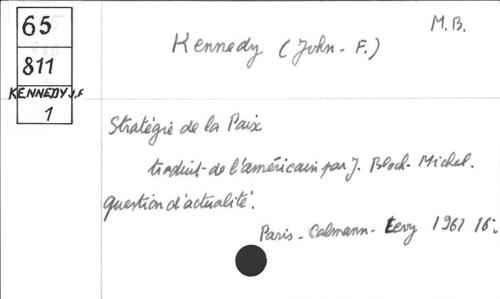 65
M.B.
Kennedy (John-F.)
811
KENNEDY J.F
1
Stratégie de la Paix
traduit de l'américain par J. Bloch-Michel.
question d'actualité.
Paris-Calmann-Levy 1961 16: